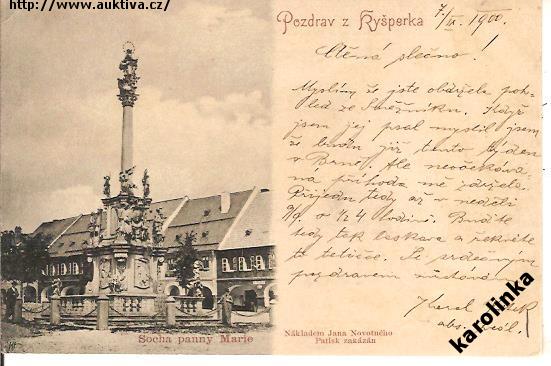 http://www.auktiva.cz/
Pozdrav z Kyšperka
7/IX. 1900.
Ctěná slečno!
Myslím že jste obdržela poh-
led ze Sněžníku. Když
jsem jej psal myslil jsem
že budu již tento týden
v Brně. Ale neočekáva-
ná příhoda mě zdržela.
Přijedu tedy až v neděli
9/9. o ½ 4 hodině. Buďte
tedy tak laskava a řekněte
to tetičce. Se srdečným
pozdravem zůstávám
Karel
abs.
Socha panny Marie
Nákladem Jana Novotného
Patisk zakázán
karolinka